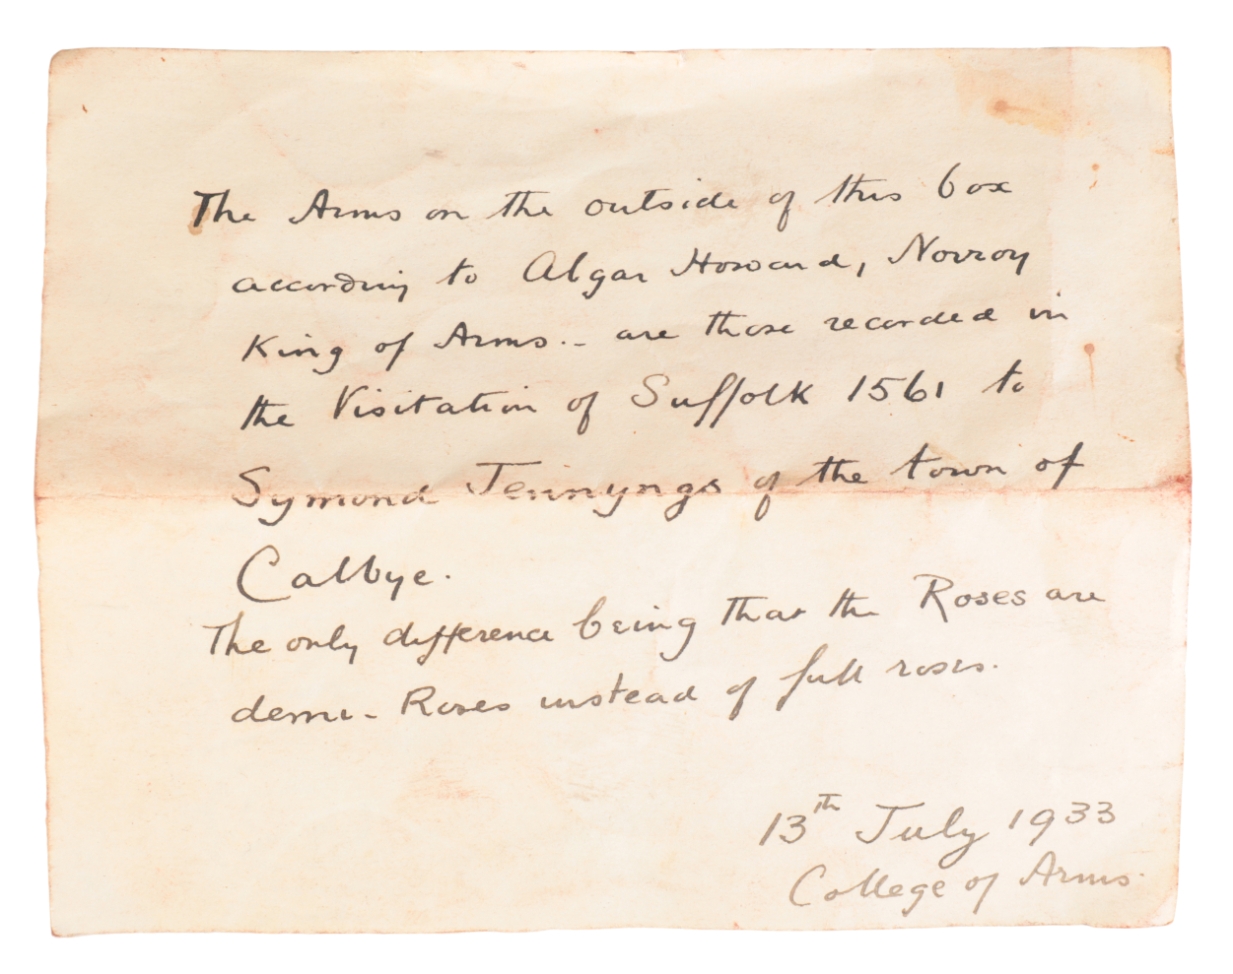 The Arms on the outside of this box
according to Algar Howard, Norroy
King of Arms.- are those recorded in
the Visitation of Suffolk 1561 to
Symond Jennyngs of the town of
Calbye.
The only difference being that the Roses are
demi-Roses instead of full roses.
13th July 1933
College of Arms.